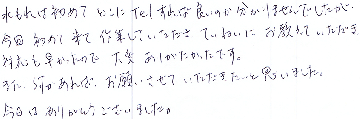 水もれは初めてどこにTelすれば良いのか分かりませんでしたが、
今回初めて来て作業していただきていねいにお教えていただき
対応も早かったので大変ありがたかったです。
また、何かあれば、お願いさせていただきたいと思いました。
今日はありがとうございました。